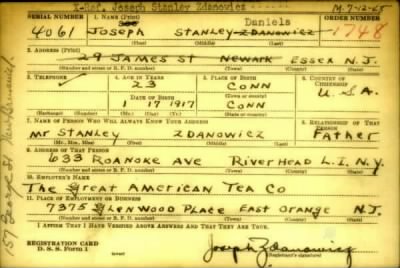 X-Ref. Joseph Stanley Zdanowicz
M. 7-12-65
SERIAL NUMBER 1. NAME (Print) Daniels ORDER NUMBER
4061 Joseph Stanley Zdanowicz 1748
(First) (Middle) (Last)
2. ADDRESS (Print)
29 JAMES ST NEWARK ESSEX N.J.
(Number and street or R. F. D. number) (Town) (County) (State)
3. TELEPHONE 4. AGE IN YEARS 5. PLACE OF BIRTH 6. COUNTRY OF CITIZENSHIP
23 CONN
DATE OF BIRTH U.S.A.
1 17 1917 CONN
(Exchange) (Number) (Mo.) (Day) (Yr.) (State or country)
7. NAME OF PERSON WHO WILL ALWAYS KNOW YOUR ADDRESS 8. RELATIONSHIP OF THAT PERSON
Mr STANLEY ZDANOWICZ FATHER
(Mr., Mrs., Miss) (First) (Middle) (Last)
9. ADDRESS OF THAT PERSON
633 ROANOKE AVE RIVERHEAD L.I. N.Y.
(Number and street or R. F. D. number) (Town) (County) (State)
10. EMPLOYER'S NAME
The Great American Tea Co
11. PLACE OF EMPLOYMENT OR BUSINESS
7375 GLENWOOD PLACE EAST ORANGE N.J.
(Number and street or R. F. D. number) (Town) (County) (State)
I AFFIRM THAT I HAVE VERIFIED ABOVE ANSWERS AND THAT THEY ARE TRUE.
REGISTRATION CARD
D. S. S. Form 1
Joseph Zdanowicz
(Registrant's signature)
157 George St